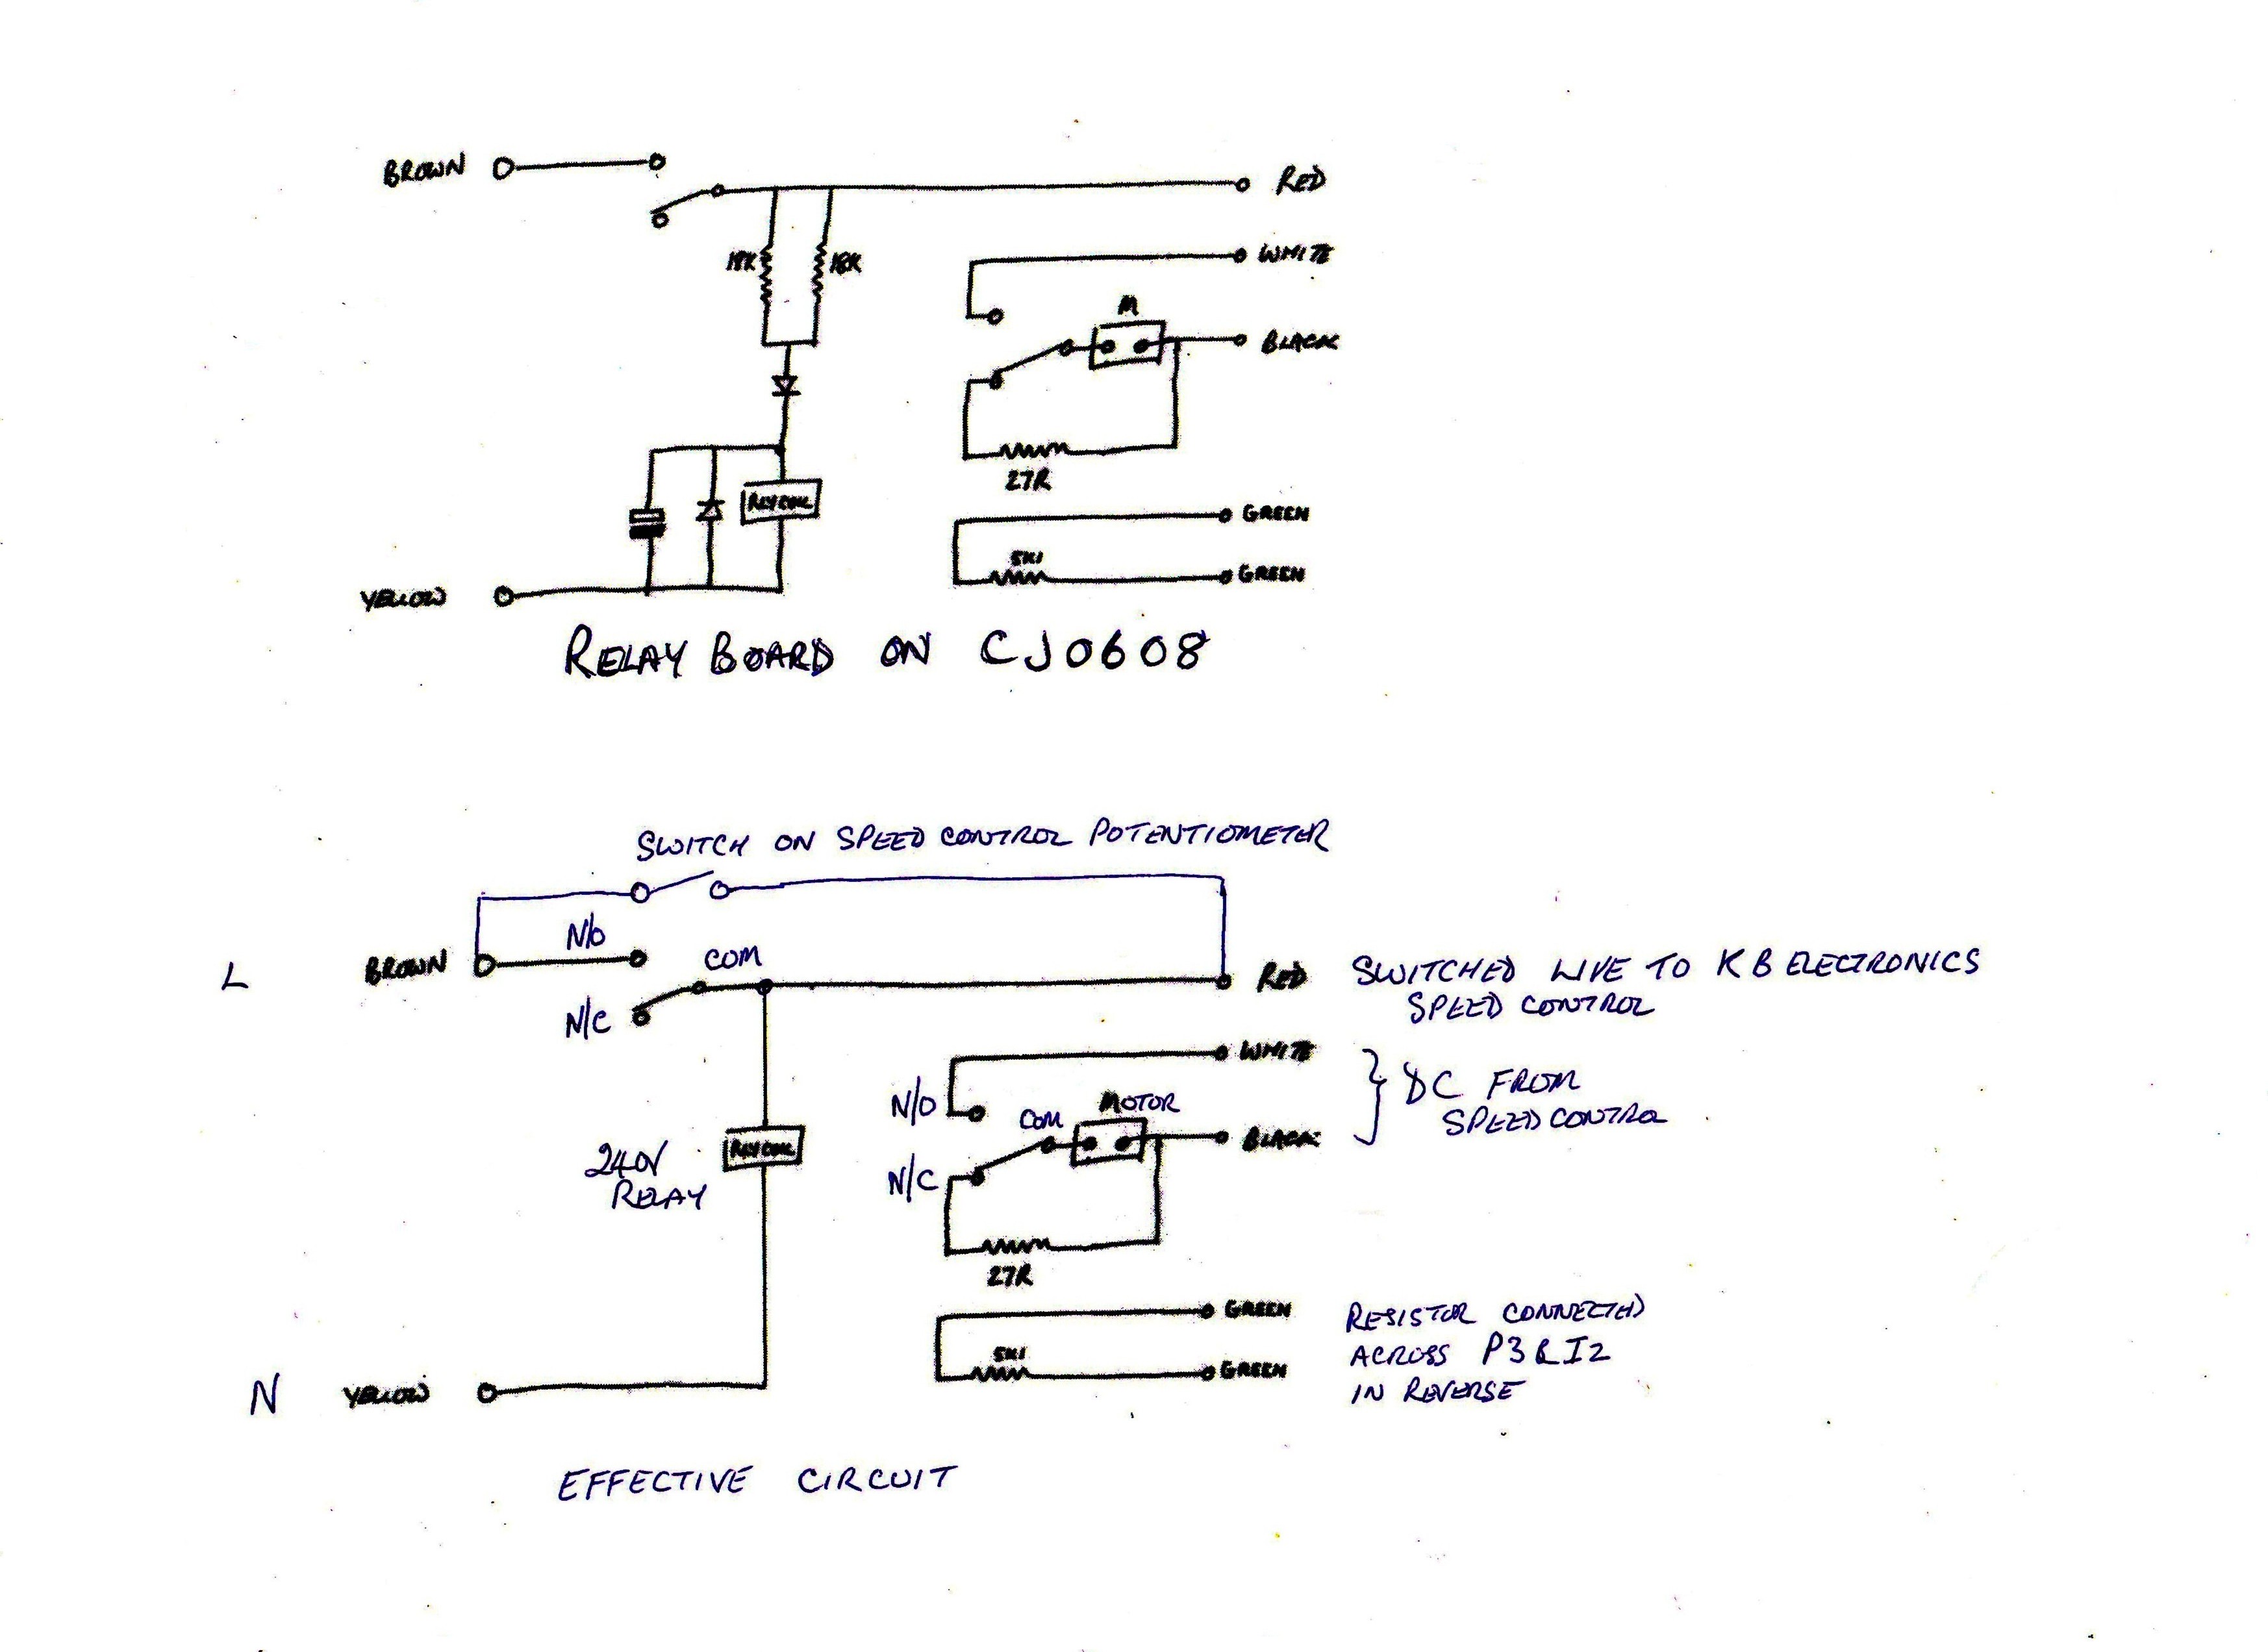 BROWN
RED
WHITE
18K
18K
M
BLACK
27R
RLY COIL
GREEN
5K1
GREEN
YELLOW
RELAY BOARD ON CJ0608
SWITCH ON SPEED CONTROL POTENTIOMETER
N/O
COM
L
BROWN
RED
SWITCHED LIVE TO KB ELECTRONICS
SPEED CONTROL
N/C
WHITE
DC FROM
SPEED CONTROL
N/O
COM
MOTOR
BLACK
240V
RELAY
RLY COIL
N/C
27R
GREEN
5K1
GREEN
RESISTOR CONNECTED
ACROSS P3 & I2
IN REVERSE
N
YELLOW
EFFECTIVE CIRCUIT